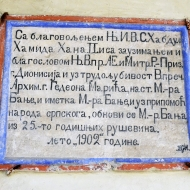 Са благовољењем Њ.И.В.С.Х.Абдул
Хамида Хана II са заузимањем и
благословом Њ.В.пр. А.Е и Митр. Р. Приз.
г. Дионисија и уз трудољубивост В. преч.
Архим. г. Гедеона Марића, наст. М-ра
Бање, и иметка М-ра Бање, уз припомоћ
народа српског, обнови се М-р Бања
из 25.-то годишњих рушевина,
лето „1902" године.